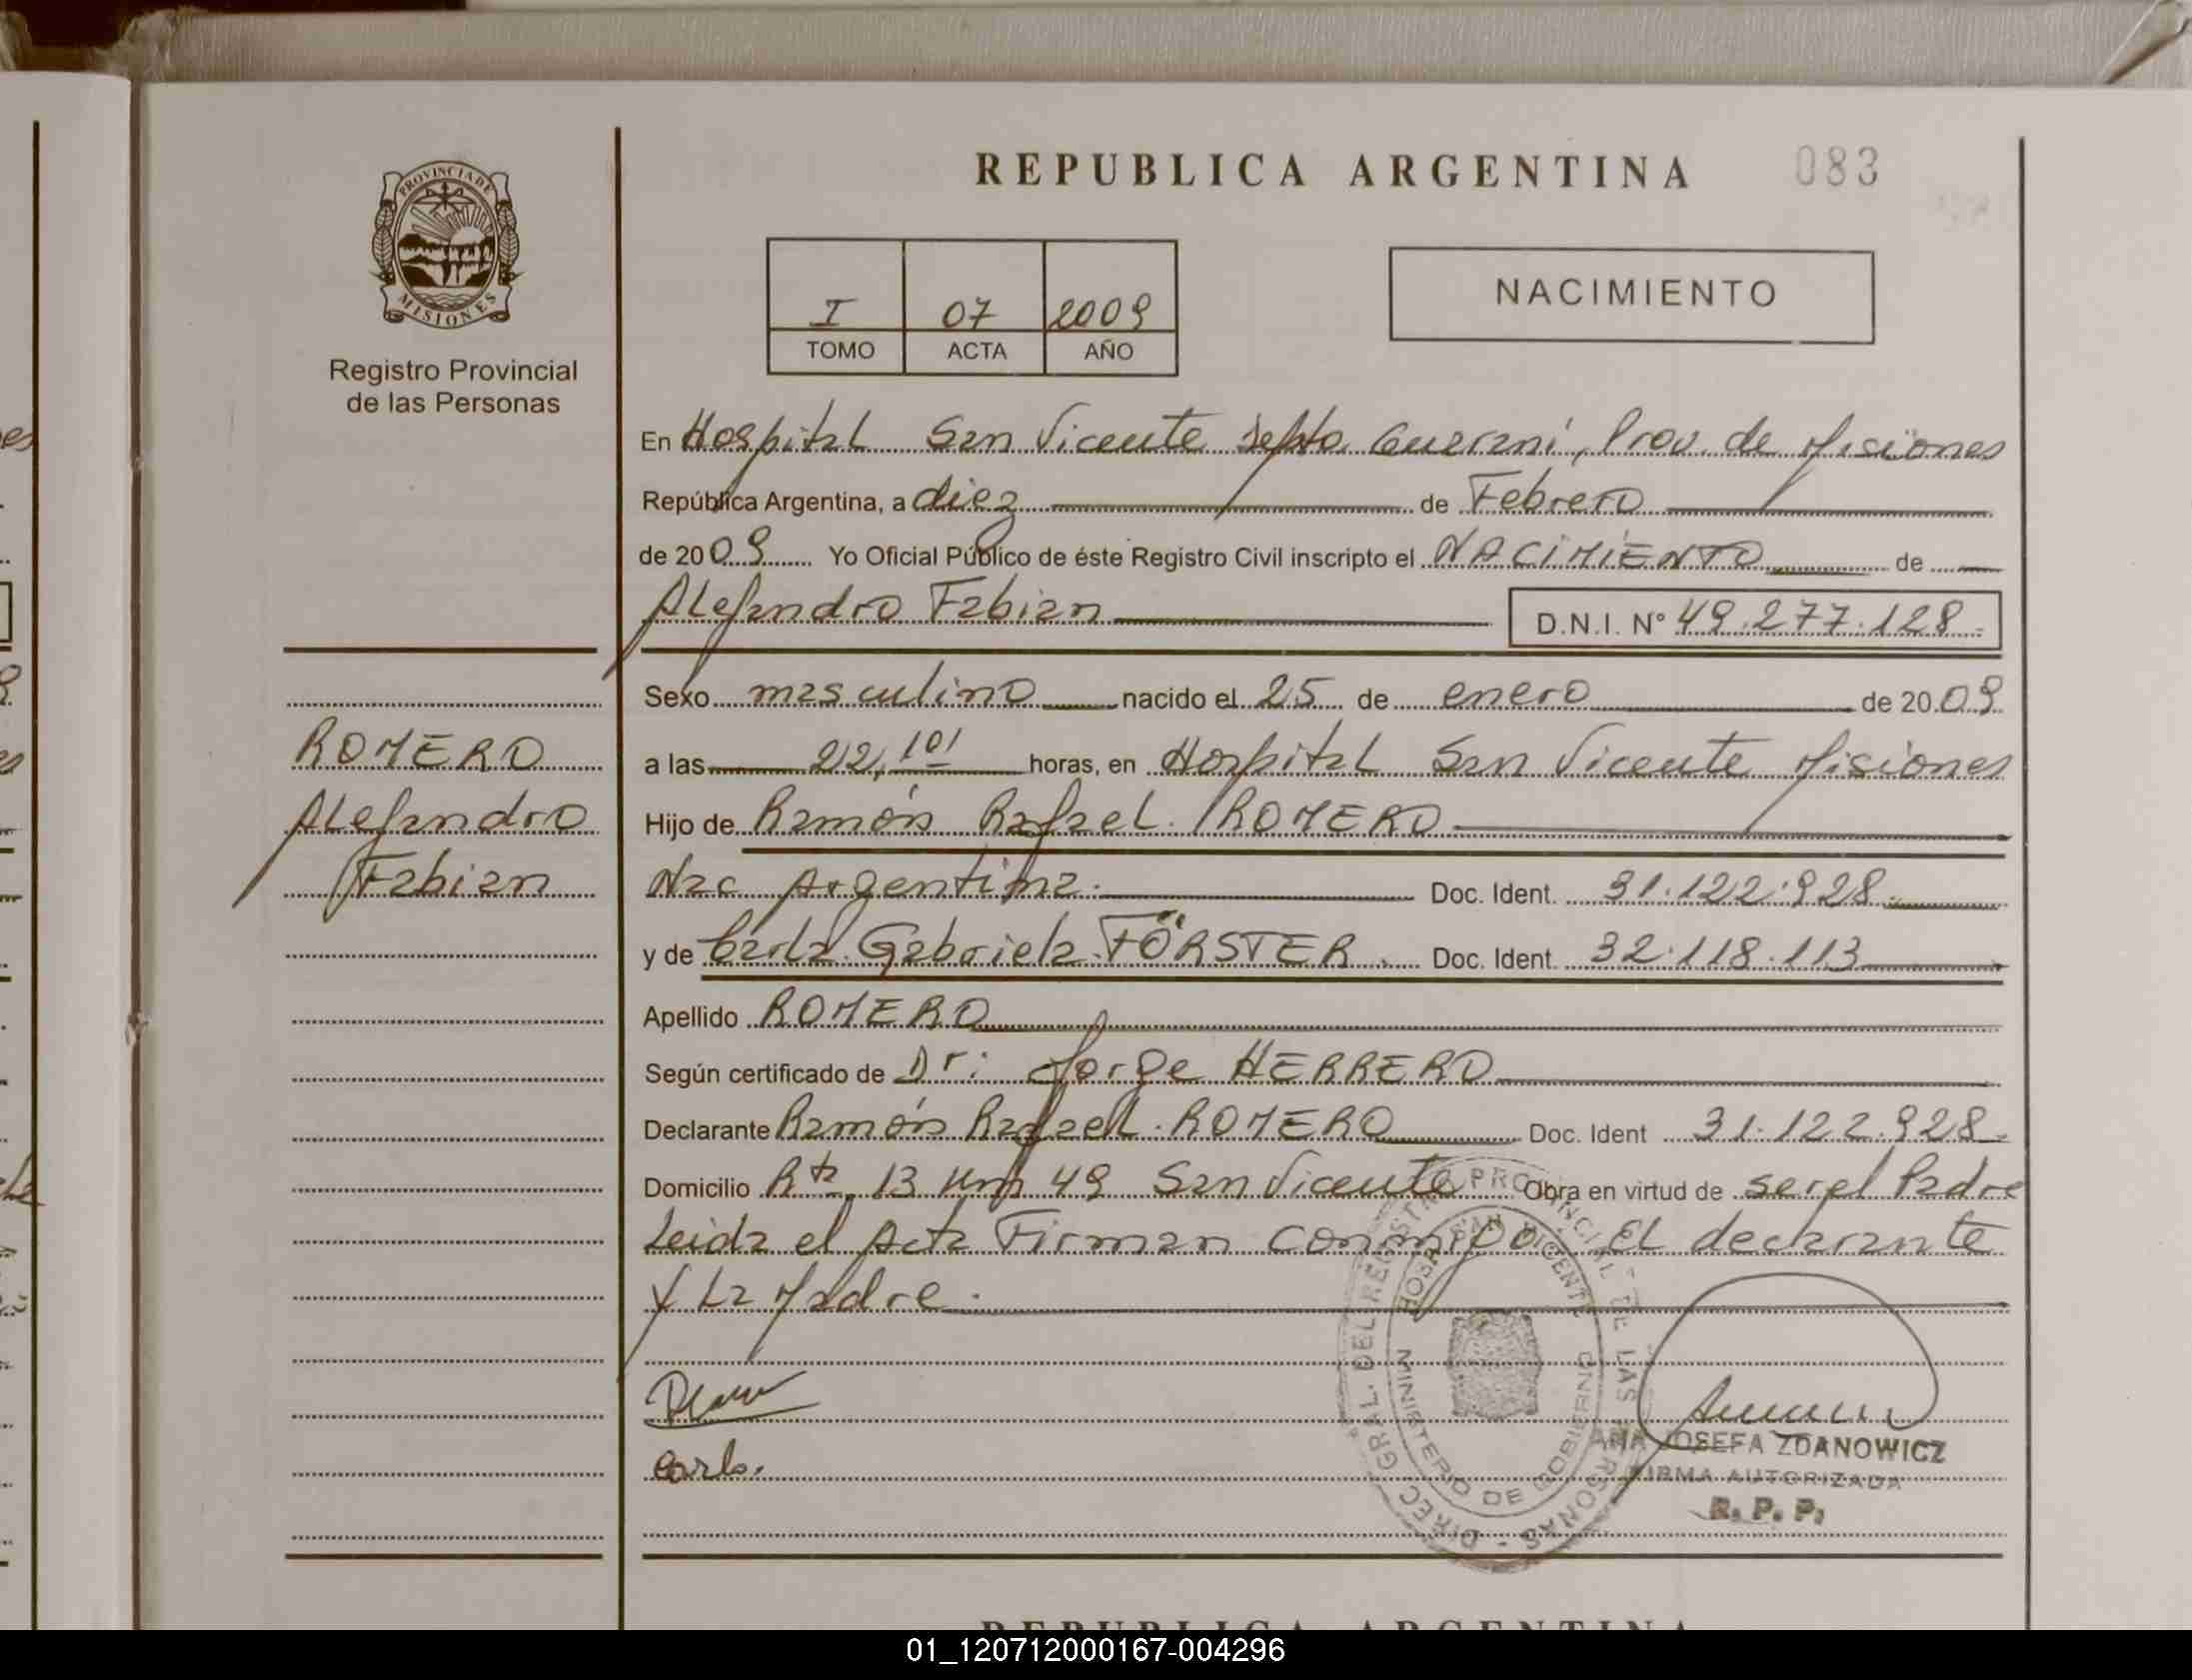 REPUBLICA ARGENTINA 083
PROVINCIA DE
MISIONES
Registro Provincial
de las Personas
I 07 2009
TOMO ACTA AÑO
NACIMIENTO
En Hospital San Vicente Depto. Guaraní, Prov. de Misiones
República Argentina, a diez de Febrero
de 2009 Yo Oficial Público de éste Registro Civil inscripto el NACIMIENTO de
Alejandro Fabian D.N.I. N° 49.277.128
Sexo masculino nacido el 25 de enero de 2009
a las 22,10 horas, en Hospital San Vicente Misiones
Hijo de Ramón Rafael ROMERO
Nac Argentina. Doc. Ident. 31.122.928
y de Carla Gabriela FÖRSTER Doc. Ident. 32.118.113
Apellido ROMERO
Según certificado de Dr: Jorge HERRERO
Declarante Ramón Rafael ROMERO Doc. Ident 31.122.928
Domicilio Rta 13 Km 49 San Vicente Obra en virtud de ser el Padre
Leida el Acta Firman conmigo EL declarante
Y La Madre.
ROMERO
Alejandro
Fabian
Carla
DIREC. GRAL. DEL REGISTRO PROVINCIAL DE LAS PERSONAS
HOSP. SAN VICENTE
MINISTERIO DE GOBIERNO
ANA JOSEFA ZDANOWICZ
FIRMA AUTORIZADA
R. P. P.
REPUBLICA ARGENTINA
01_120712000167-004296